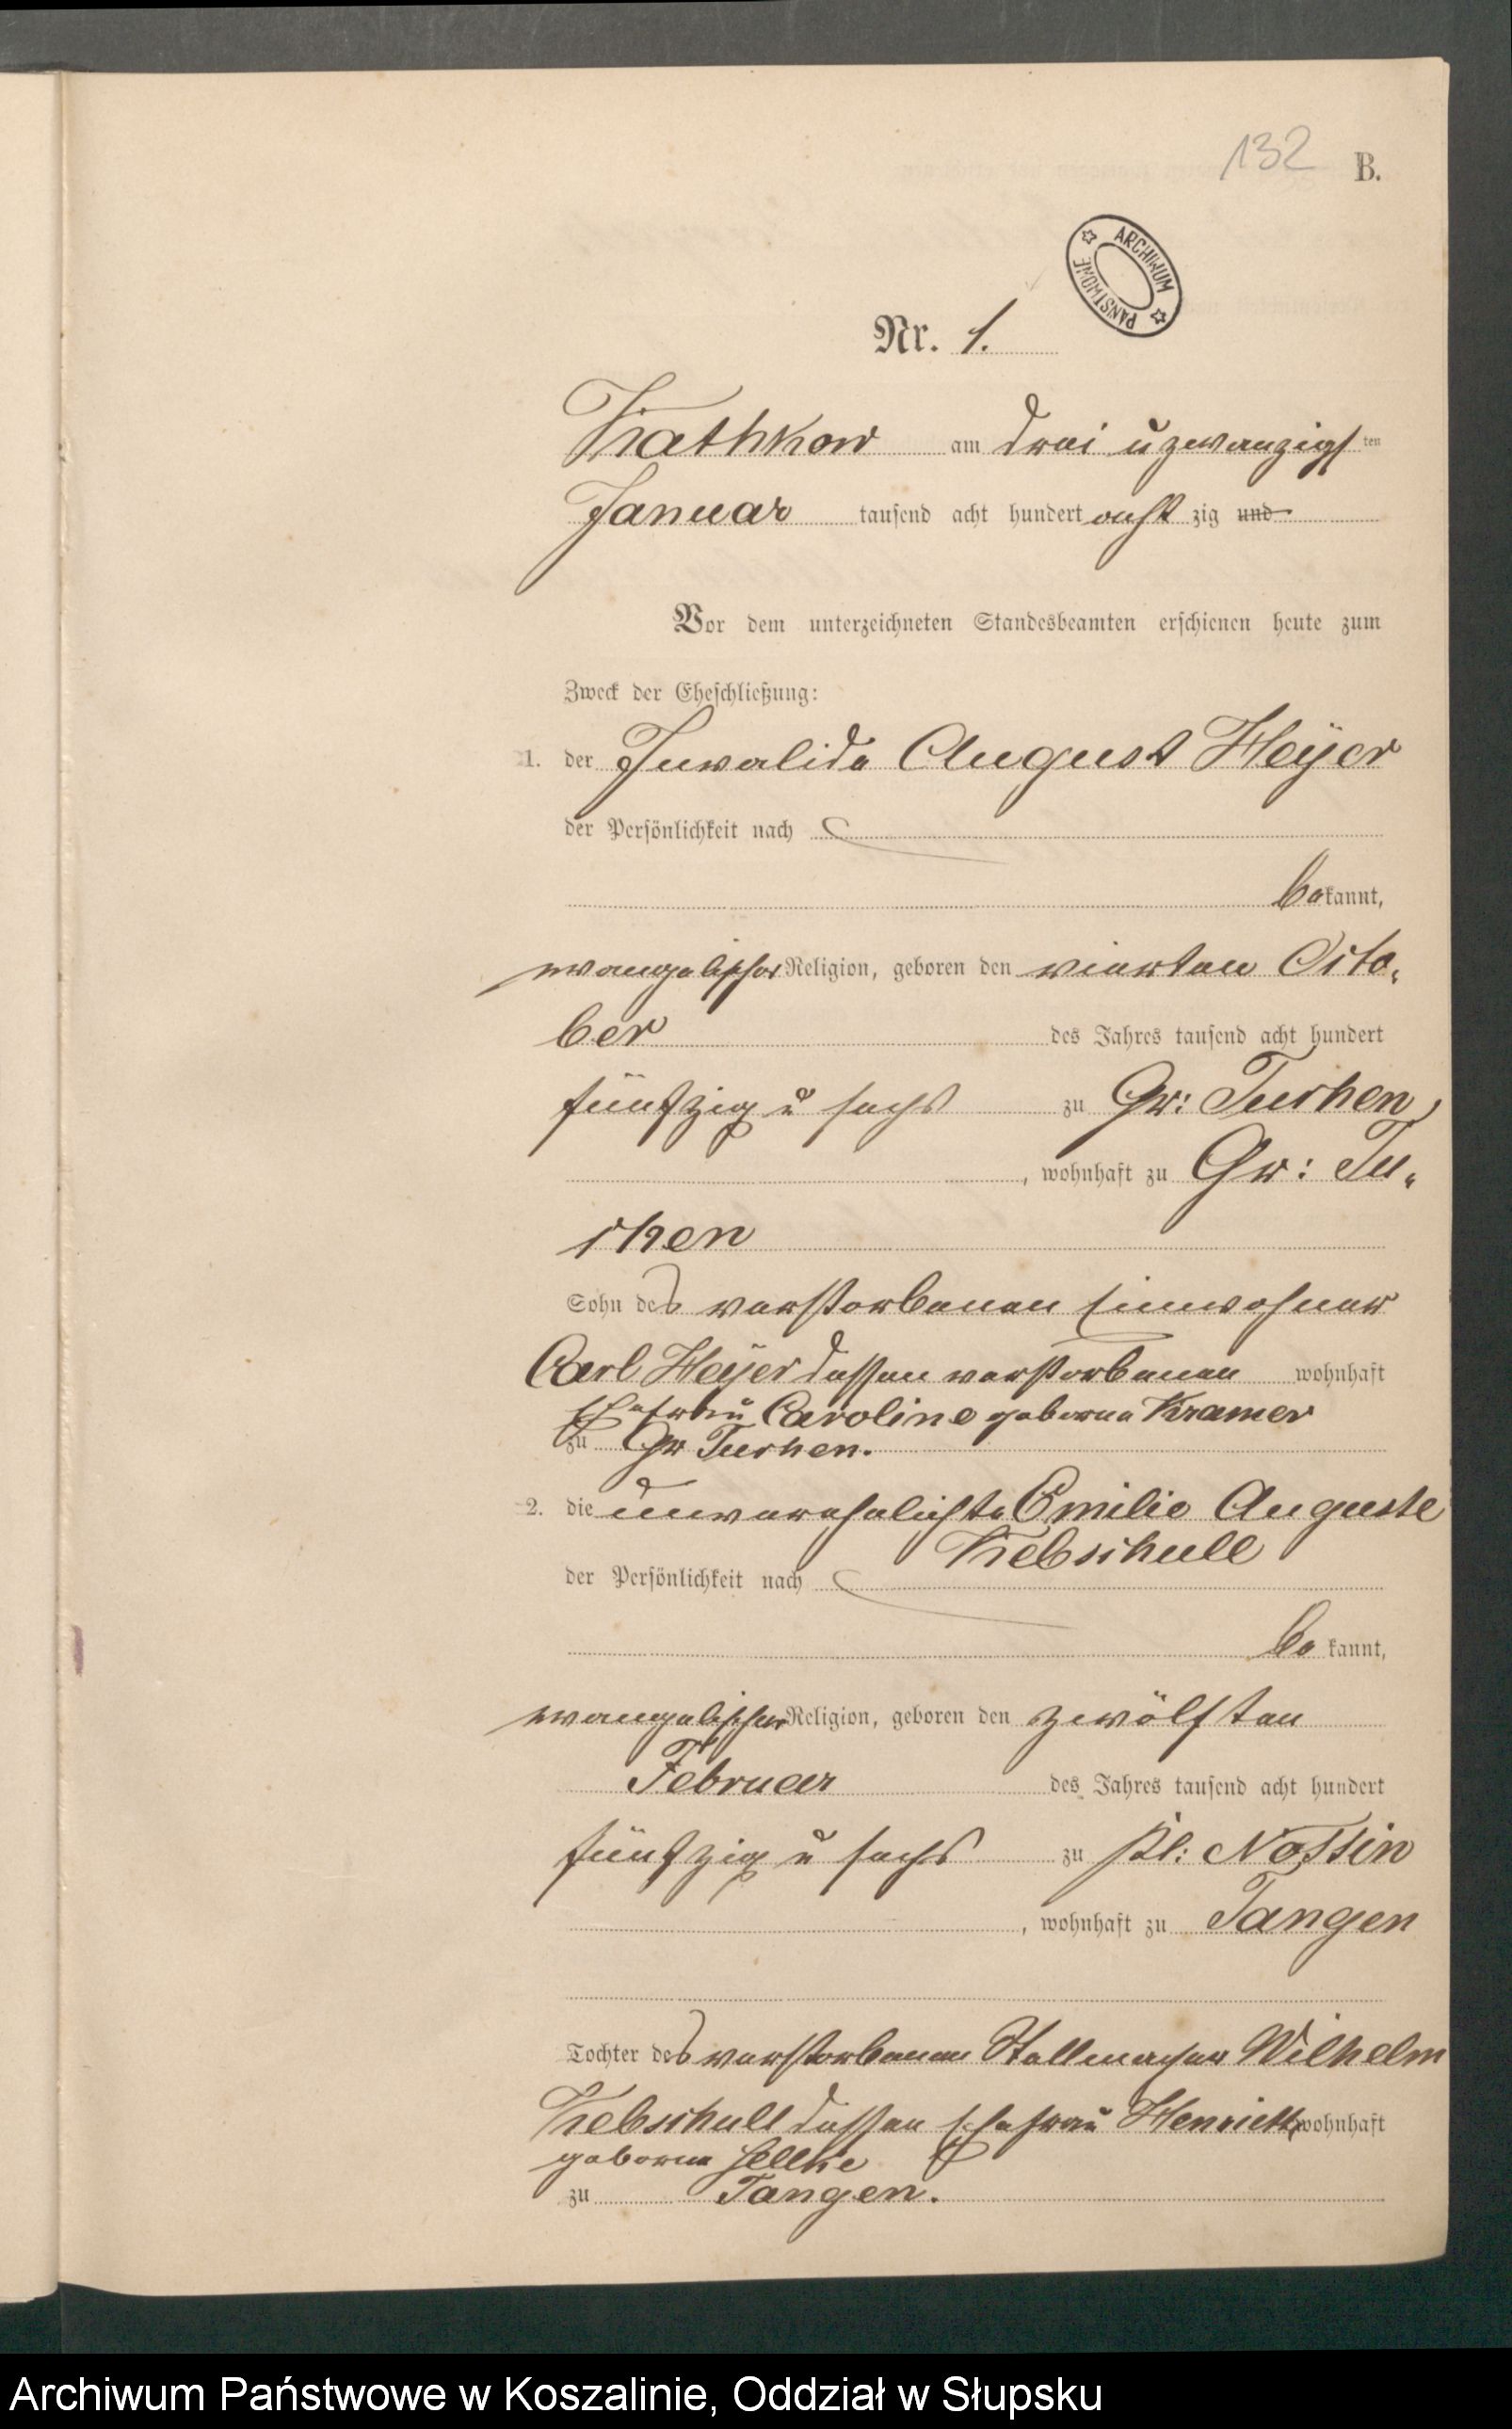 132 B.
ARCHIWUM PAŃSTWOWE
Nr. 1.
Kathkow am drei u zwanzigsten
Januar tausend acht hundert acht zig und
Vor dem unterzeichneten Standesbeamten erschienen heute zum
Zweck der Eheschließung:
1. der Invalide August Heÿer
der Persönlichkeit nach
bekannt,
evangelischer Religion, geboren den vierten Octo-
ber des Jahres tausend acht hundert
fünfzig u sechs zu Gr: Tuchen,
, wohnhaft zu Gr: Tu-
chen
Sohn des verstorbenen Einwohner
Carl Heÿer dessen verstorbenen wohnhaft
Ehefrau Caroline geborne Kramer
zu Gr Tuchen.
2. die unverehelichte Emilie Auguste
Kebschull
der Persönlichkeit nach
bekannt,
evangelischer Religion, geboren den zwölften
Februar des Jahres tausend acht hundert
fünfzig u sechs zu Kl: Nossin
, wohnhaft zu Tangen
Tochter des verstorbenen Stellmacher Wilhelm
Kebschull dessen Ehefrau Henriette wohnhaft
geborne Sellke
zu Tangen.
Archiwum Państwowe w Koszalinie, Oddział w Słupsku